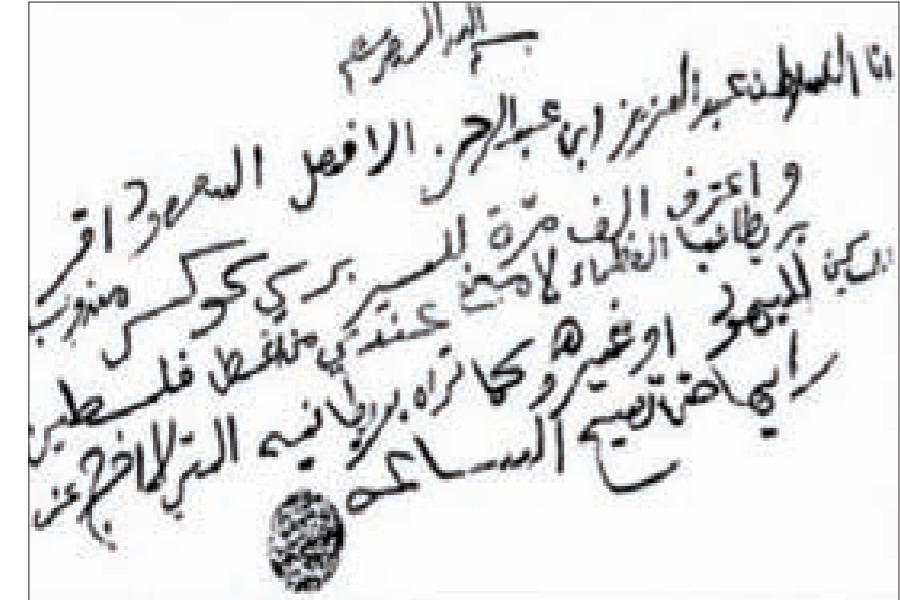 بسم الله الرحمن الرحيم
انا السلطان عبد العزيز ابن عبد الرحمن الافصل السعود اقر
و اعترف الف مرة للسير برسي كوكس مندوب
بريطانيا العظماء لا مانع عندي من اعطي فلسطين
للمساكين لليهود او غيرهم وكما تراه بريطانيه التي لا اخرج عن
رايها حتى تصيح الساعه